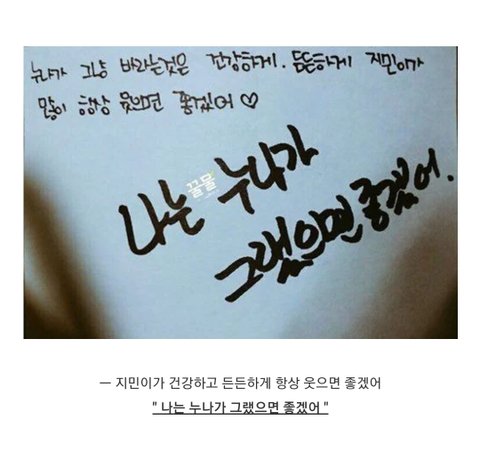 누나가 그냥 바라는것은 건강하게. 듬든하게 지민이가
많이 항상 웃으면 좋겠어 ♡
꿀물
나는 누나가
그랬으면 좋겠어.
ㅡ 지민이가 건강하고 든든하게 항상 웃으면 좋겠어
" 나는 누나가 그랬으면 좋겠어 "